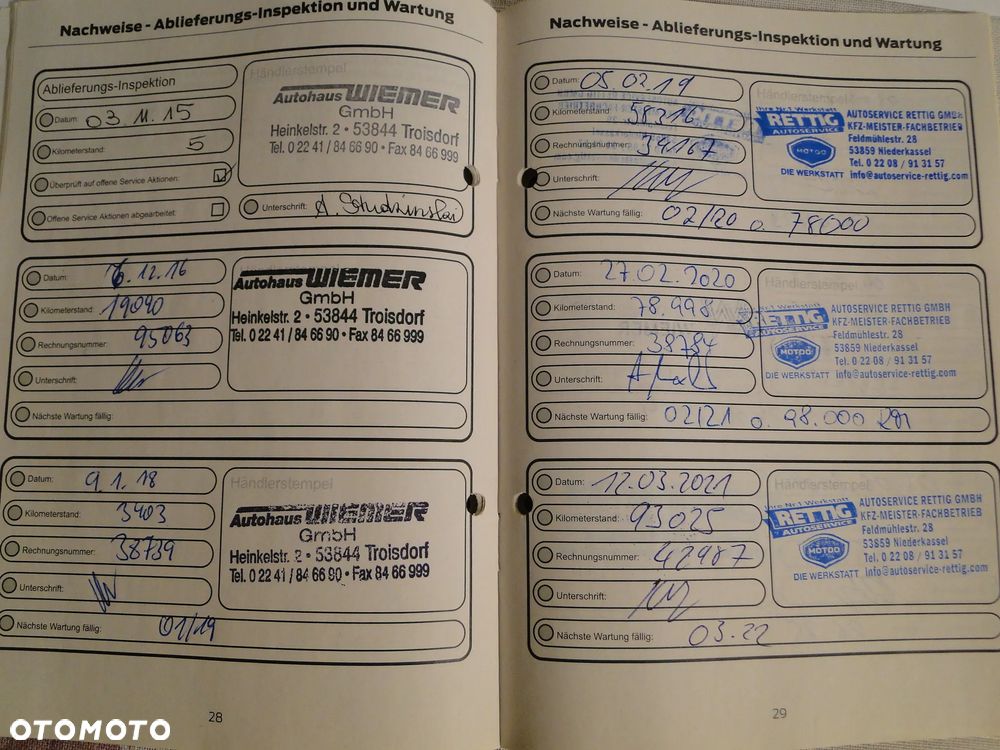 Nachweise - Ablieferungs-Inspektion und Wartung
Ablieferungs-Inspektion
Datum: 03.11.15
Kilometerstand: 5
Überprüft auf offene Service Aktionen:
Offene Service Aktionen abgearbeitet:
Händlerstempel
Autohaus WIEMER
GmbH
Heinkelstr. 2 • 53844 Troisdorf
Tel. 0 22 41 / 84 66 90 • Fax 84 66 999
Unterschrift:
Datum: 6.12.16
Kilometerstand: 19090
Rechnungsnummer: 95063
Unterschrift:
Nächste Wartung fällig:
Autohaus WIEMER
GmbH
Heinkelstr. 2 • 53844 Troisdorf
Tel. 0 22 41 / 84 66 90 • Fax 84 66 999
Datum: 9.1.18
Kilometerstand: 3903
Rechnungsnummer: 38739
Unterschrift:
Nächste Wartung fällig: 01/19
Händlerstempel
Autohaus WIEMER
GmbH
Heinkelstr. 2 • 53844 Troisdorf
Tel. 0 22 41 / 84 66 90 • Fax 84 66 999
28
Nachweise - Ablieferungs-Inspektion und Wartung
Datum: 05.02.19
Kilometerstand: 58216
Rechnungsnummer: 34167
Unterschrift:
Nächste Wartung fällig: 02/20 o. 78000
Händlerstempel
Ihre Nr.1 Werkstatt
RETTIG
AUTOSERVICE
MOTOO
DIE WERKSTATT
AUTOSERVICE RETTIG GMBH
KFZ-MEISTER-FACHBETRIEB
Feldmühlestr. 28
53859 Niederkassel
Tel. 0 22 08 / 91 31 57
info@autoservice-rettig.com
Datum: 27.02.2020
Kilometerstand: 78.998
Rechnungsnummer: 38784
Unterschrift:
Nächste Wartung fällig: 02/21 o. 98.000 km
Händlerstempel
RETTIG
AUTOSERVICE
MOTOO
DIE WERKSTATT
AUTOSERVICE RETTIG GMBH
KFZ-MEISTER-FACHBETRIEB
Feldmühlestr. 28
53859 Niederkassel
Tel. 0 22 08 / 91 31 57
info@autoservice-rettig.com
Datum: 12.03.2021
Kilometerstand: 93025
Rechnungsnummer: 42987
Unterschrift:
Nächste Wartung fällig: 03.22
Händlerstempel
Ihre Nr.1 Werkstatt
RETTIG
AUTOSERVICE
MOTOO
DIE WERKSTATT
AUTOSERVICE RETTIG GMBH
KFZ-MEISTER-FACHBETRIEB
Feldmühlestr. 28
53859 Niederkassel
Tel. 0 22 08 / 91 31 57
info@autoservice-rettig.com
29
OTOMOTO